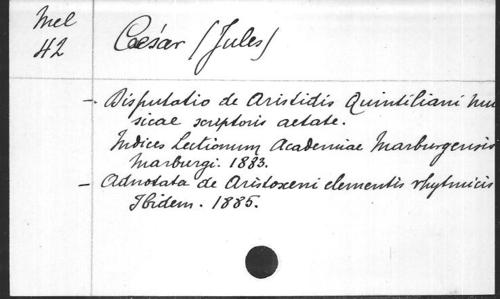 Mel
42
Caesar (Jules)
- Disputatio de Aristidis Quintiliani mu
sicae scriptoris aetate.
Indices Lectionum Academiae Marburgensis
Marburgi. 1883.
- Adnotata de Aristoxeni elementis rhytmicis
Ibidem. 1885.